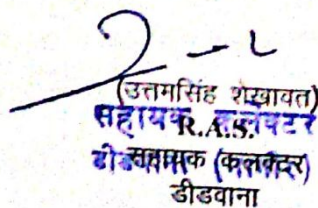 (उत्तमसिंह शेखावत)
सहायक कलेक्टर
R.A.S.
सहायक (कलक्टर)
डीडवाना